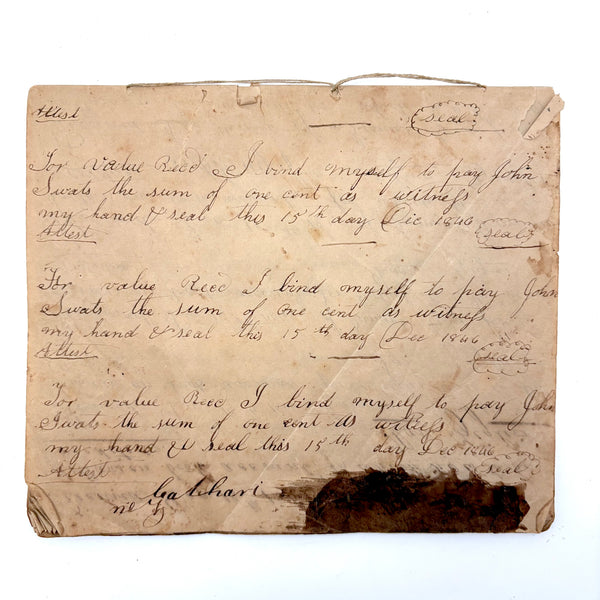 Attest
seal
For value Recd I bind myself to pay John
Swats the sum of one cent as witness
my hand & seal this 15th day Dec 1846
Attest
seal
For value Recd I bind myself to pay John
Swats the sum of one cent as witness
my hand & seal this 15th day Dec 1846
Attest
seal
For value Recd I bind myself to pay John
Swats the sum of one cent as witness
my hand & seal this 15th day Dec 1846
Attest
seal